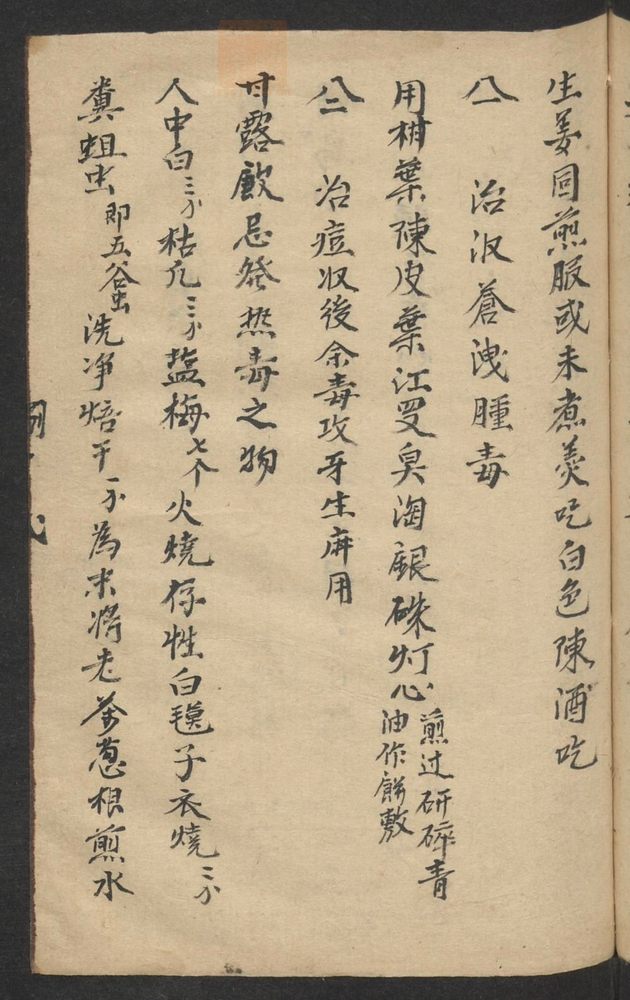 生姜同煎服或未煮羹吃白色陳酒吃
八一 治汊蒼洩腫毒
用柑葉陳皮葉江旻臭淘銀硃灯心煎过研碎青油作餅敷
八二 治痘收後余毒攻牙生麻用
甘露飲忌發㷊毒之物
人中白三分枯凢三分鹽梅七个火燒存性白毯子衣燒二分
糞蛆虫即五谷虫洗净焙干一分為末将老茶葱根煎水